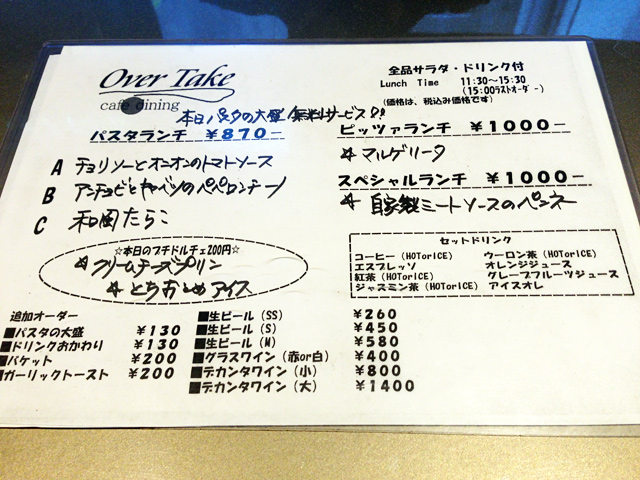 Over Take
cafe dining
全品サラダ・ドリンク付
Lunch Time 11:30～15:30
(15:00ラストオーダー)
(価格は、税込み価格です)
本日パスタの大盛 無料サービス!!
パスタランチ ￥870－
A チョリソーとオニオンのトマトソース
B アンチョビとキャベツのペペロンチーノ
C 和風たらこ
ピッツァランチ ￥1000－
☆ マルゲリータ
スペシャルランチ ￥1000－
☆ 自家製ミートソースのペンネ
☆本日のプチドルチェ200円☆
☆クリームチーズプリン
☆とちおとめアイス
セットドリンク
コーヒー (HOTorICE) ウーロン茶 (HOTorICE)
エスプレッソ オレンジジュース
紅茶 (HOTorICE) グレープフルーツジュース
ジャスミン茶 (HOTorICE) アイスオレ
追加オーダー
■パスタの大盛 ￥130
■ドリンクおかわり ￥130
■バケット ￥200
■ガーリックトースト ￥200
■生ビール (SS) ￥260
■生ビール (S) ￥450
■生ビール (M) ￥580
■グラスワイン (赤or白) ￥400
■デカンタワイン (小) ￥800
■デカンタワイン (大) ￥1400